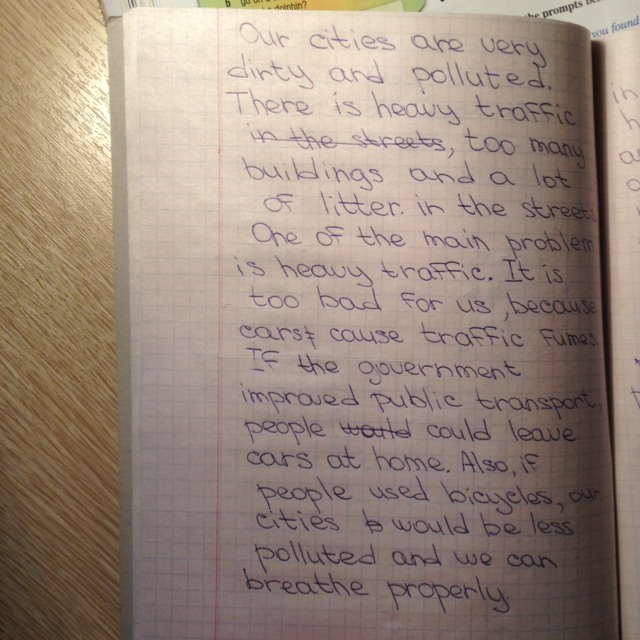 go on a
b
dolphin?
the prompts be
you found
Our cities are very
dirty and polluted.
There is heavy traffic
in the streets, too many
buildings and a lot
of litter. in the street
One of the main problem
is heavy traffic. It is
too bad for us, because
cars cause traffic fumes.
If the government
improved public transport,
people would could leave
cars at home. Also, if
people used bicycles, our
cities b would be less
polluted and we can
breathe properly